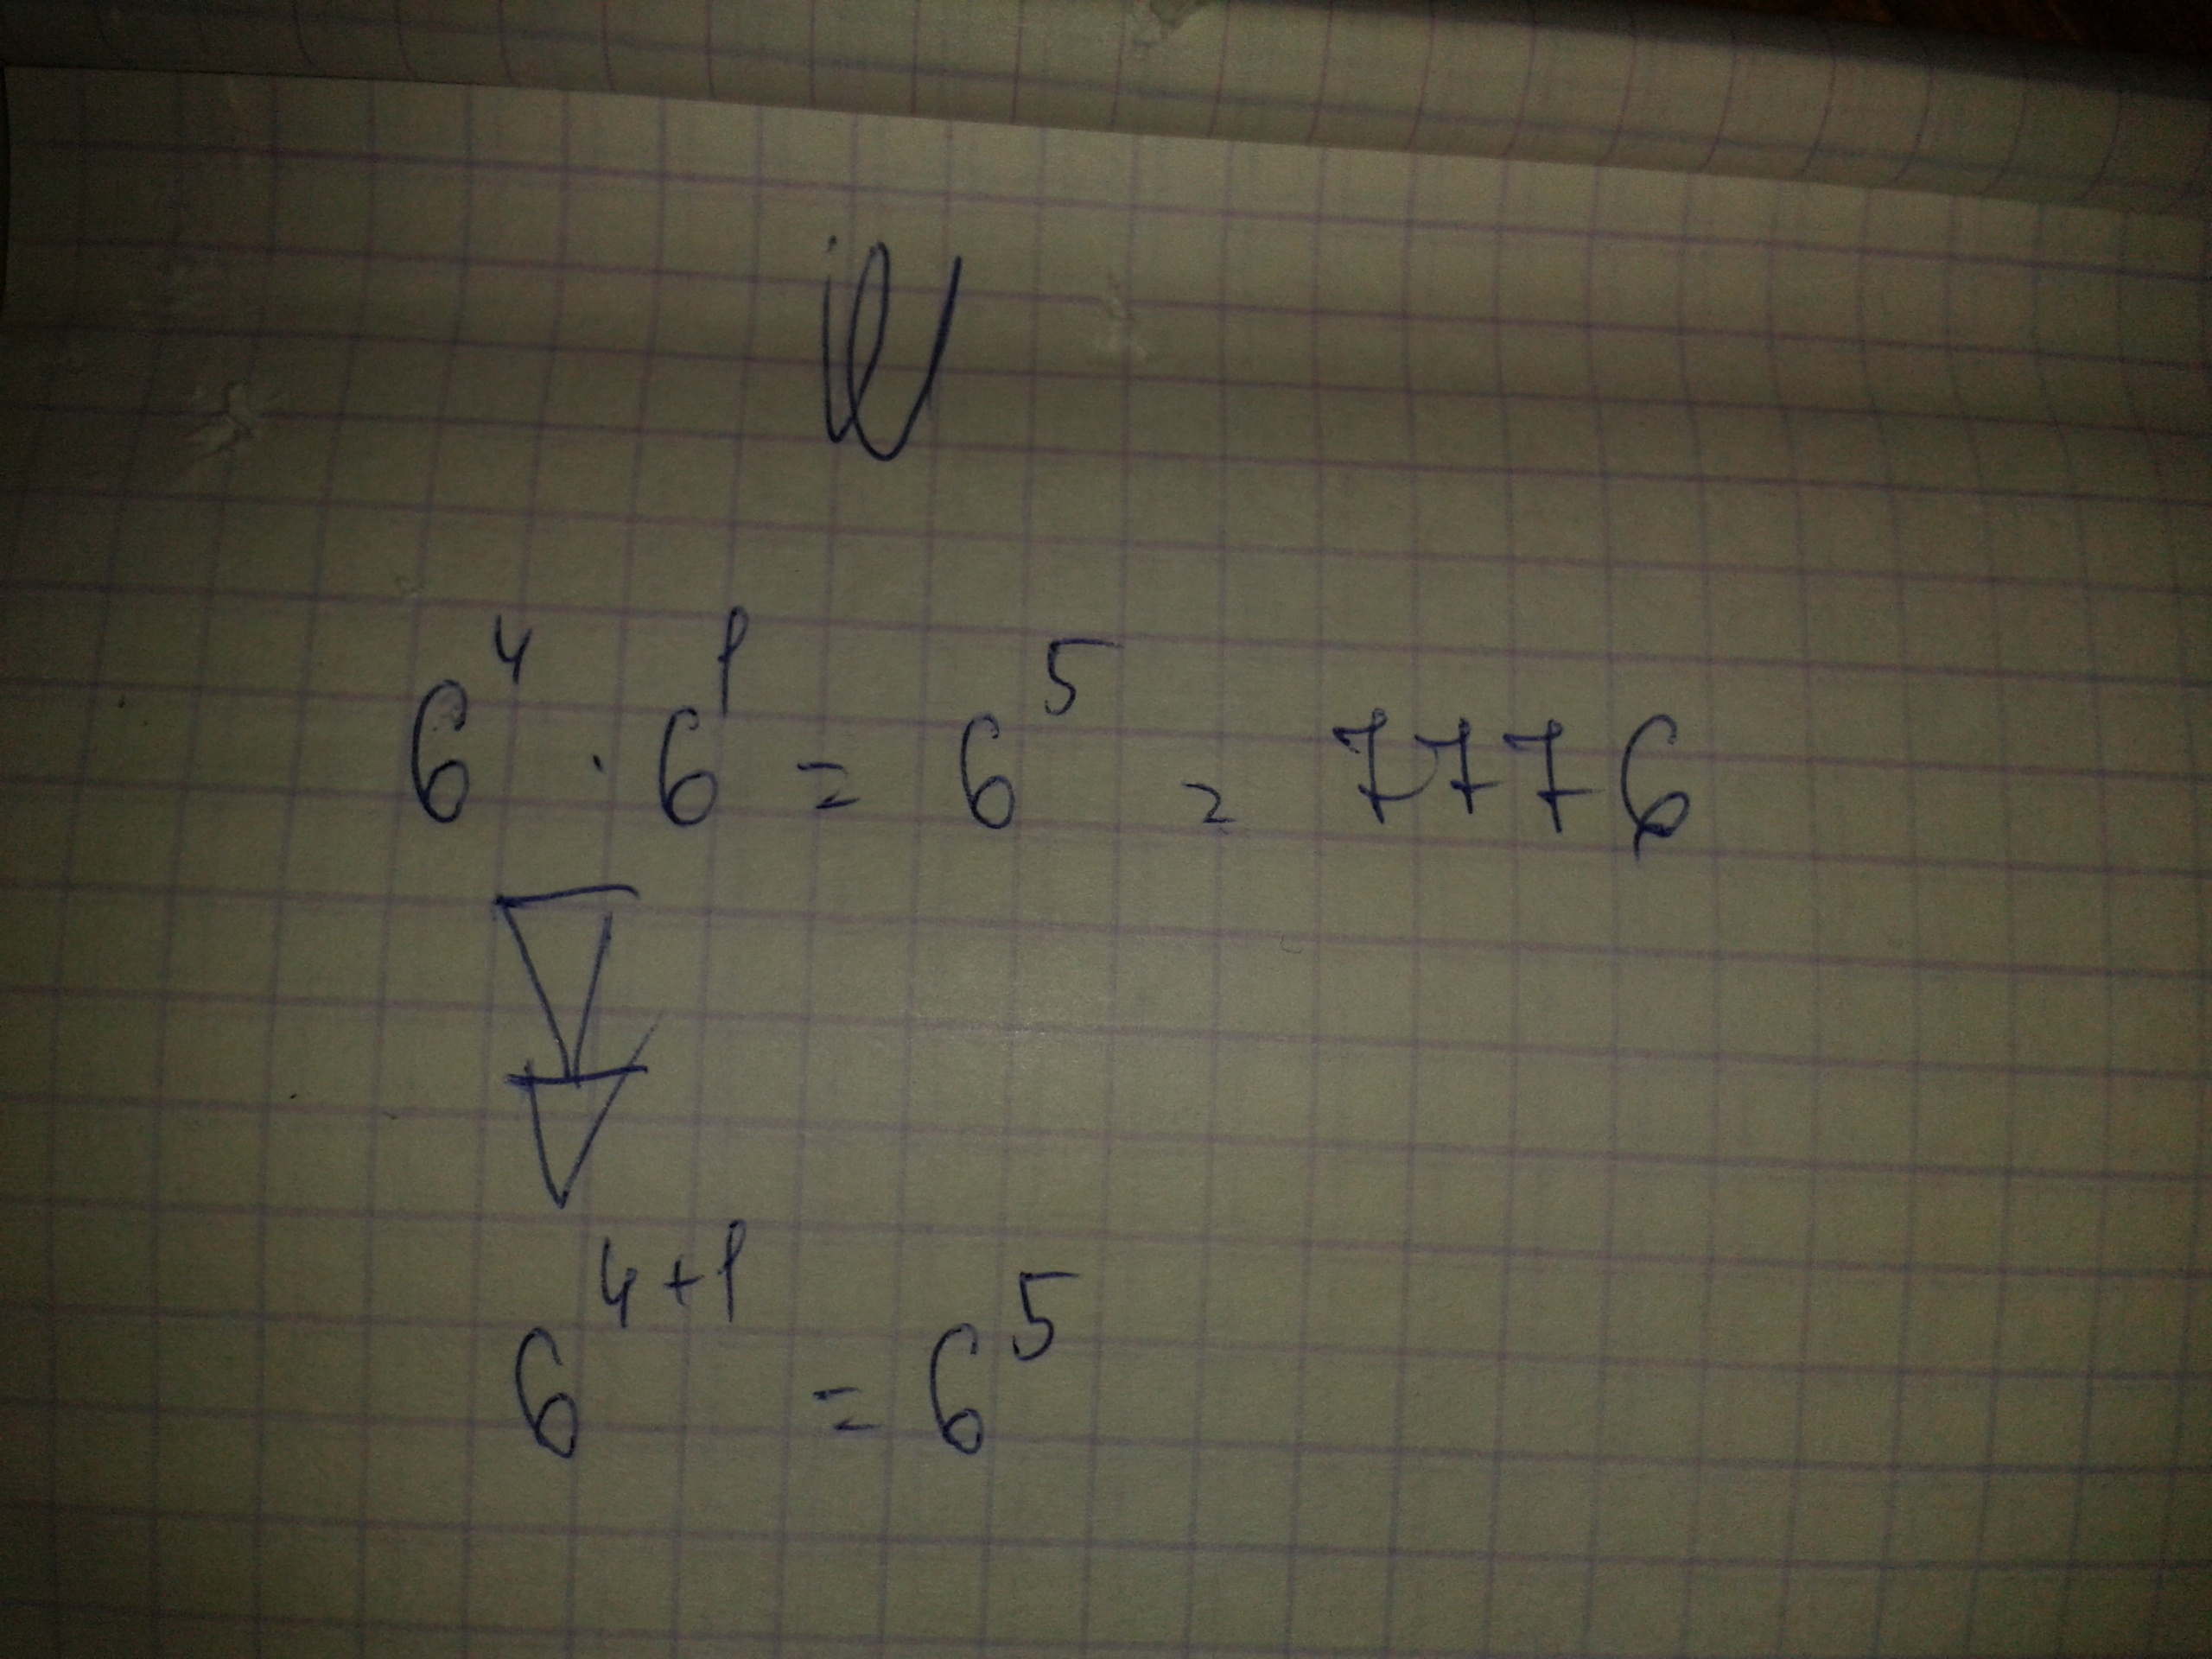 6⁴ · 6¹ = 6⁵ = 7776
6⁴⁺¹ = 6⁵